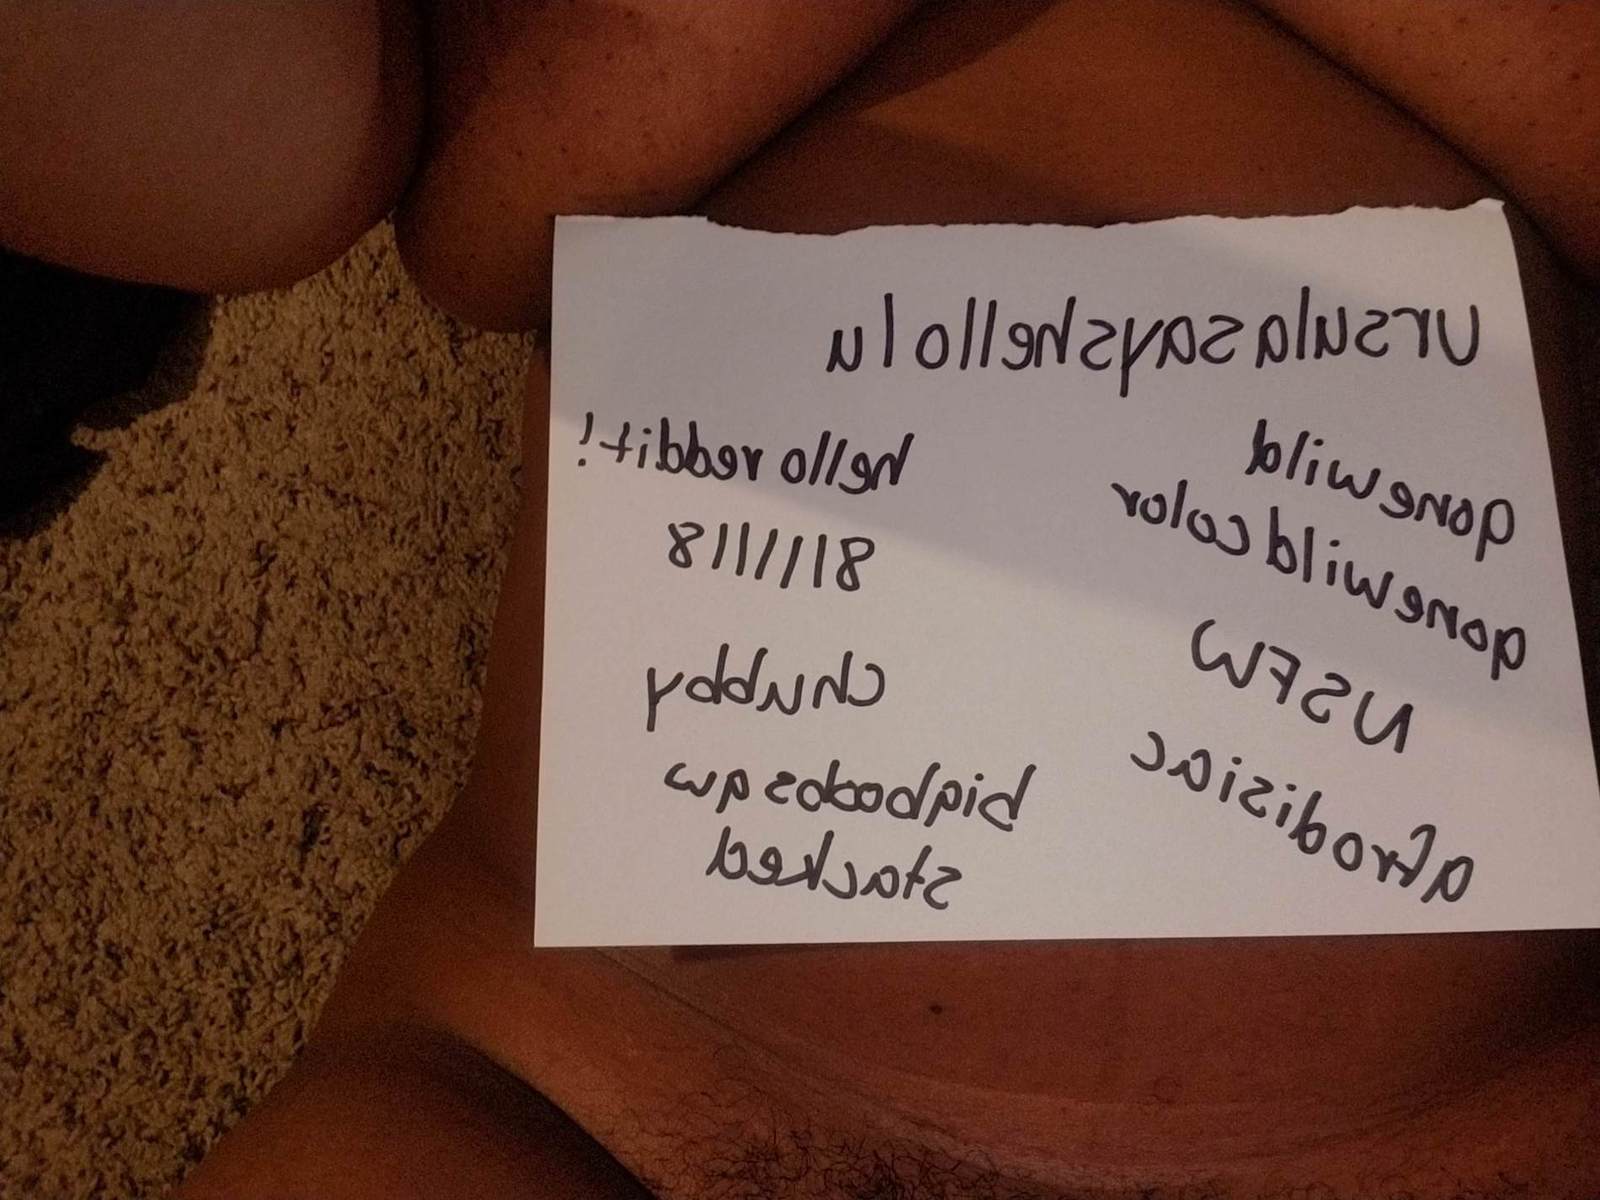 ursulasayshellolu
gonewild
gonewildcolor
NSFW
afrodisiac
hello reddit!
8/11/18
chubby
bigboobsgw
stacked